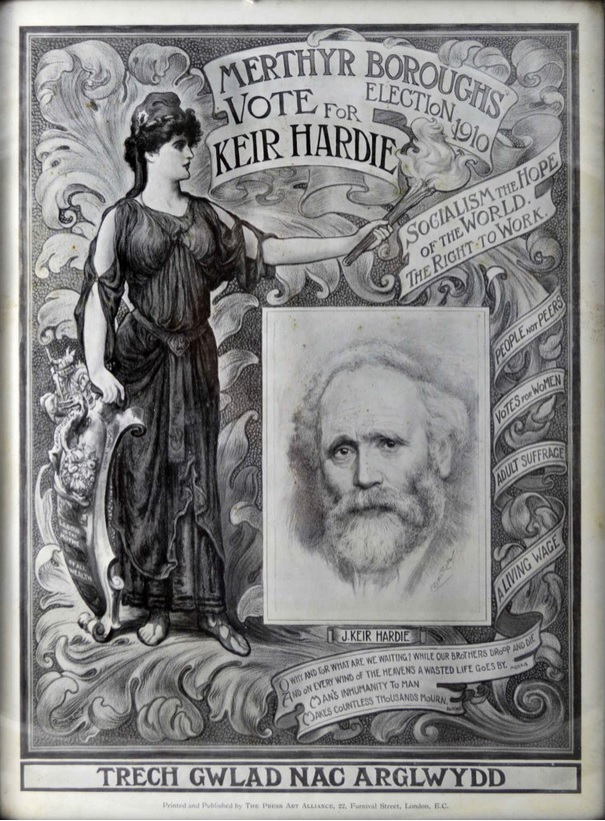 MERTHYR BOROUGHS
ELECTION 1910
VOTE FOR
KEIR HARDIE
SOCIALISM THE HOPE
OF THE WORLD.
THE RIGHT TO WORK.
PEOPLE NOT PEERS
VOTES FOR WOMEN
ADULT SUFFRAGE
A LIVING WAGE
BY ALL
J. KEIR HARDIE
O WHY AND FOR WHAT ARE WE WAITING? WHILE OUR BROTHERS DROOP AND DIE
AND ON EVERY WIND OF THE HEAVENS A WASTED LIFE GOES BY.
MAN'S INHUMANITY TO MAN
MAKES COUNTLESS THOUSANDS MOURN.
TRECH GWLAD NAC ARGLWYDD
Printed and Published by THE PRESS ART ALLIANCE, 27, Furnival Street, London, E.C.